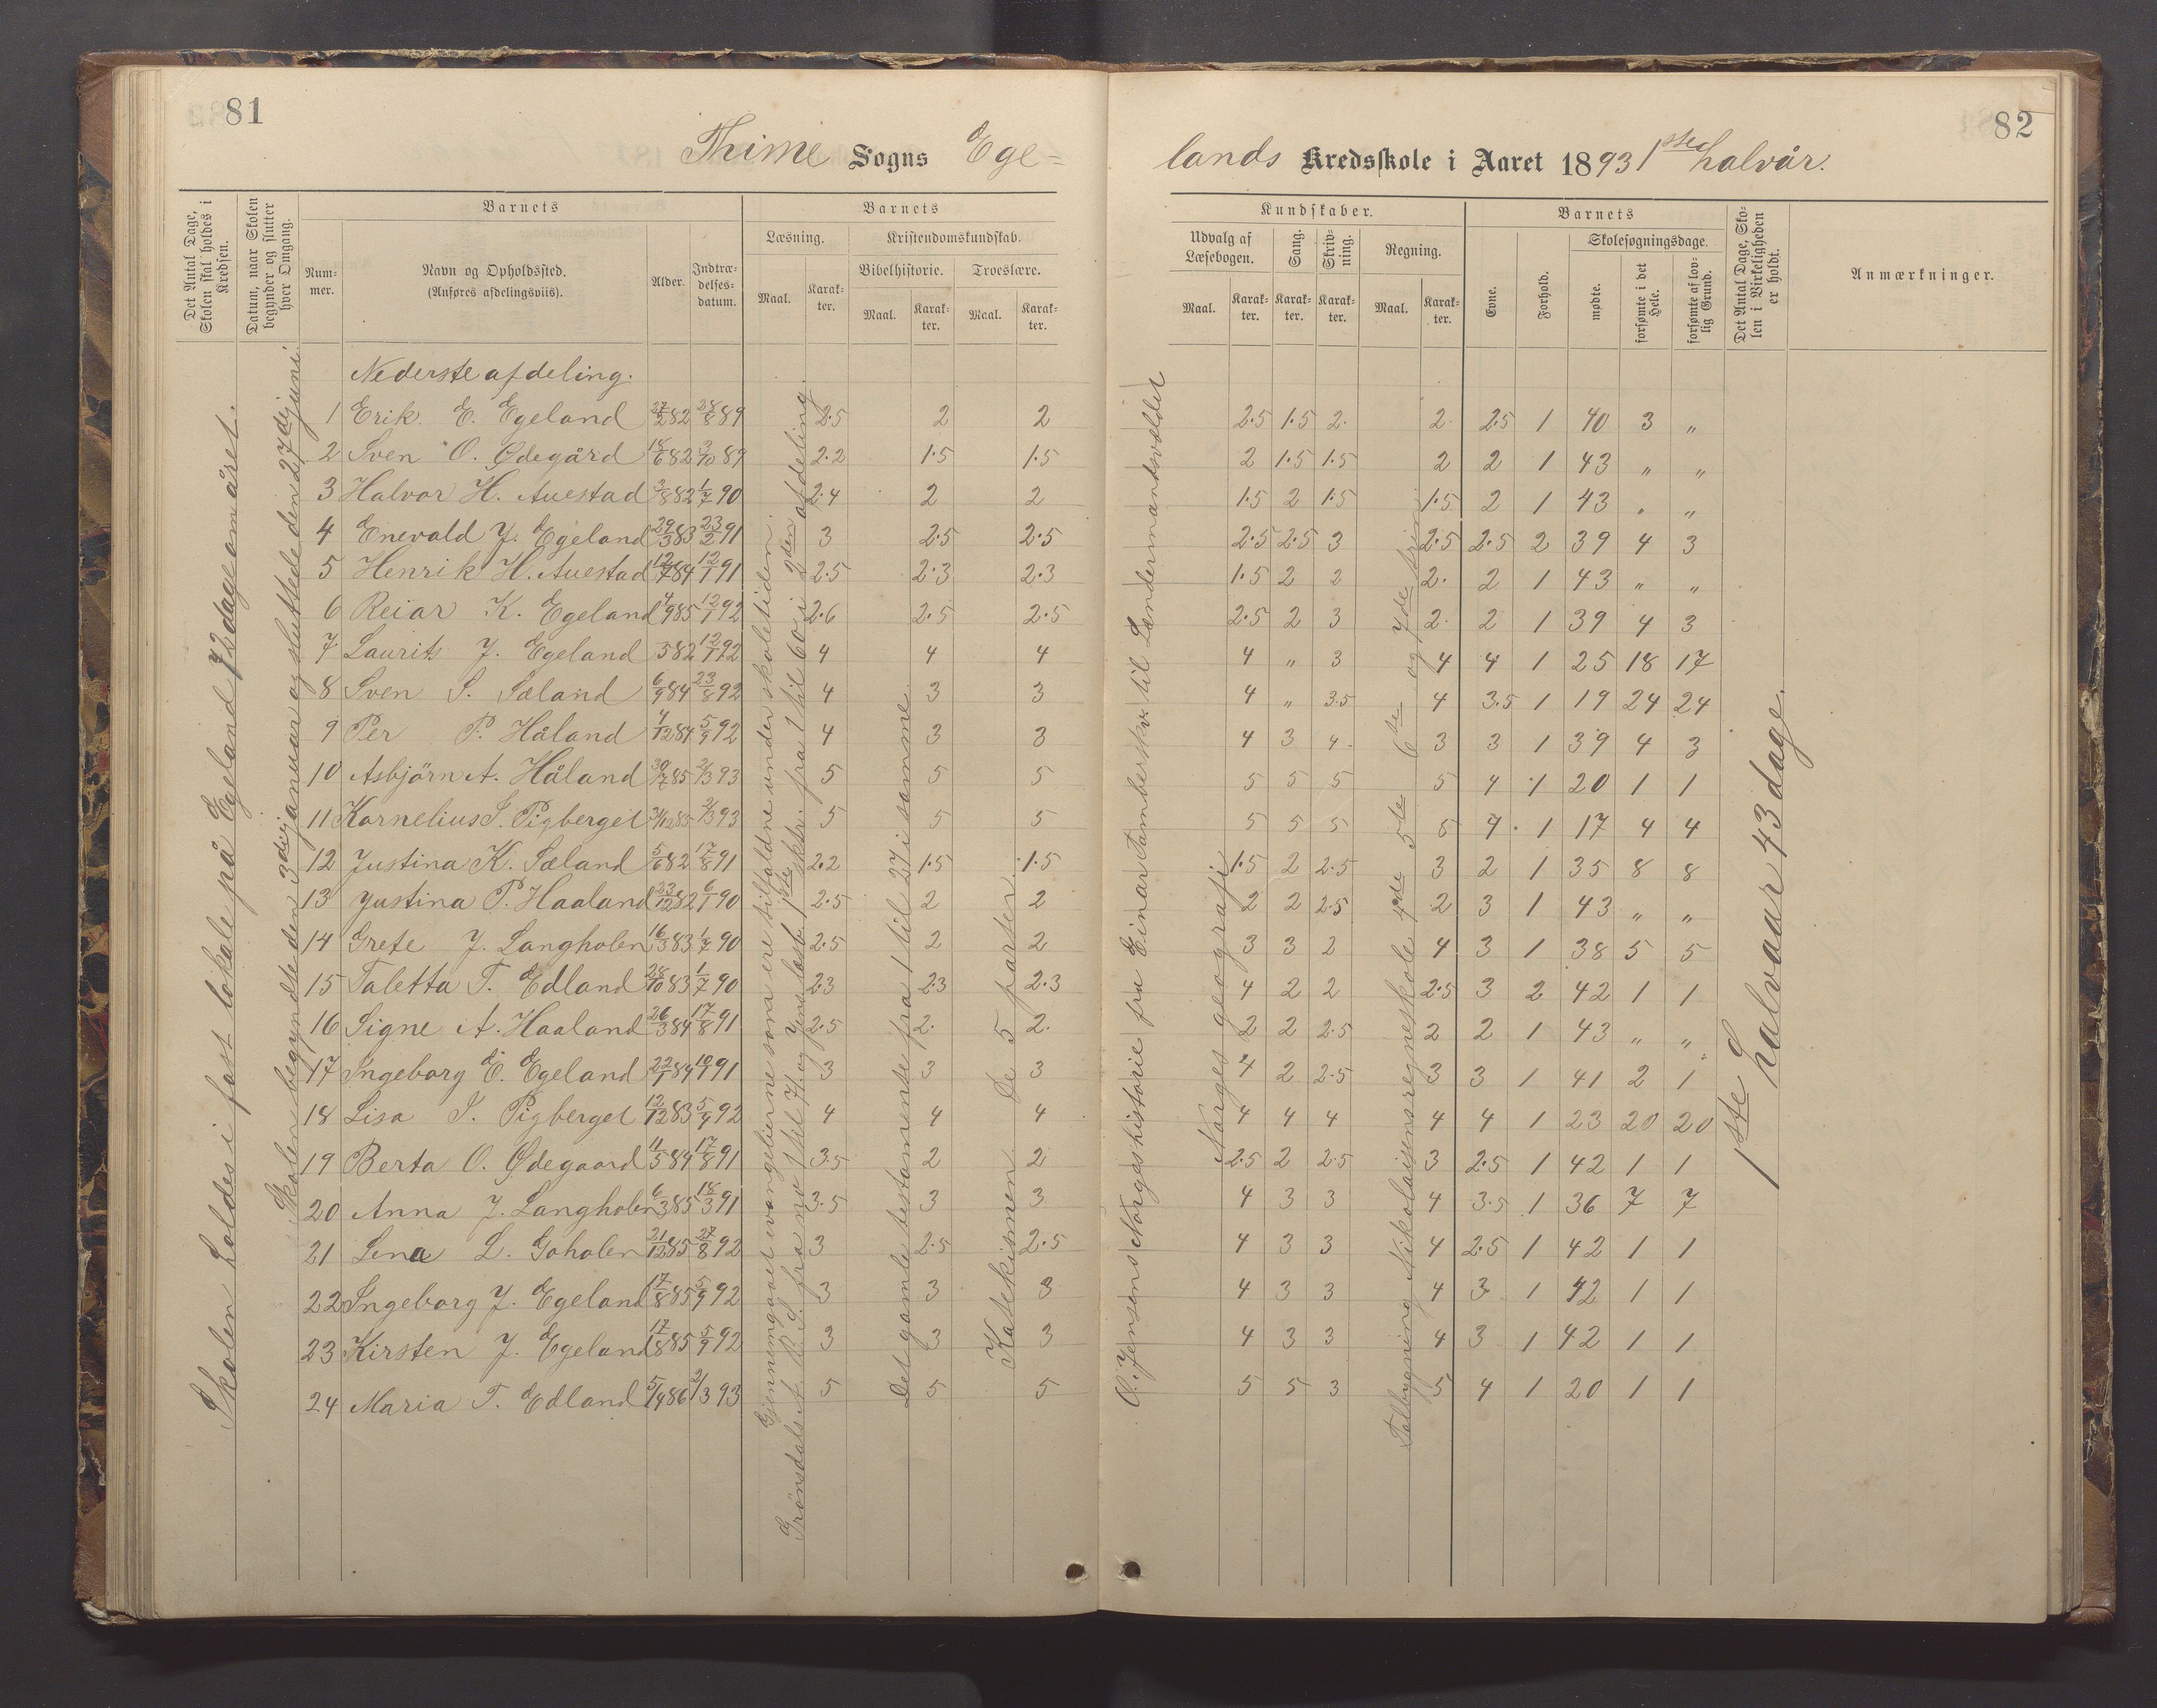 81
82
Thime Sogns Ege=
lands Kredsskole i Aaret 1893 1ste halvår.
Det Antal Dage, Skolen skal holdes i Kredsen.
Datum, naar Skolen begynder og slutter hver Omgang.
Barnets
Nummer.
Navn og Opholdssted.
(Anføres afdelingsviis).
Alder.
Indtrædelses-datum.
Barnets
Læsning.
Maal.
Karakter.
Kristendomskundskab.
Bibelhistorie.
Maal.
Karakter.
Troeslære.
Maal.
Karakter.
Kundskaber.
Udvalg af Læsebogen.
Maal.
Karakter.
Sang.
Karakter.
Skrivning.
Karakter.
Regning.
Maal.
Karakter.
Barnets
Evne.
Forhold.
Skolesøgningsdage.
mødte.
forsømte i det Hele.
forsømte af lovlig Grund.
Det Antal Dage, Skolen i Virkeligheden er holdt.
Anmærkninger.
Skolen holdes i fast lokale på Egeland 72 dage om året.
Skolen begyndte den 3die januar og sluttede den 27de juni.
Gjennemgaaet evangelierne som ere tilfaldne under skoletiden.
fra 1 til 60 i 2den afdeling
Det gamle testamente fra 1 til 27 i samme.
Katekismen. De 5 parter.
O. Jensens Norgeshistorie fra Einar Tamberskv. til Lændermandsvældet
Norges geografi
Talbygning Nikolaisens regneskole 4de 5te 6te og 7de trin
1ste halvaar 43 dage.
Nederste afdeling.
1 Erik. E. Egeland 27/2 82 28/8 89 2.5 2 2 2.5 1.5 2. 2. 2.5 1 40 3 "
2 Sven O. Ødegård 18/6 82 3/10 89 2.2 1.5 1.5 2 1.5 1.5 2 2 1 43 " "
3 Halvor H. Auestad 3/8 82 1/7 90 2.4 2 2 1.5 2 1.5 1.5 2 1 43 " "
4 Enevald J. Egeland 29/3 83 23/2 91 3 2.5 2.5 2.5 2.5 3 2.5 2.5 2 39 4 3
5 Henrik H. Auestad 12/7 84 12/1 91 2.5 2.3 2.3 1.5 2 2 2. 2 1 43 " "
6 Reiar K. Egeland 4/9 85 12/1 92 2.6 2.5 2.5 2.5 2 3 2. 2 1 39 4 3
7 Laurits J. Egeland 582 12/1 92 4 4 4 4 " 3 4 4 1 25 18 17
8 Sven S. Sæland 6/9 84 23/8 92 4 3 3 4 " 3.5 4 3.5 1 19 24 24
9 Per P. Håland 4/12 84 5/9 92 4 3 3 4 3 4. 3 3 1 39 4 3
10 Asbjörn A. Håland 30/7 85 2/3 93 5 5 5 5 5 5 5 4 1 20 1 1
11 Kornelius S. Pigberget 31/12 85 2/3 93 5 5 5 5 5 5 5 4 1 17 4 4
12 Justina K. Sæland 5/6 82 17/8 91 2.2 1.5 1.5 1.5 2 2.5 3 2 1 35 8 8
13 Justina P. Haaland 23/12 82 6/1 90 2.5 2 2 2 2 2.5 2 3 1 43 " "
14 Grete J. Langholen 16/3 83 1/7 90 2.5 2 2 3 3 2 4 3 1 38 5 5
15 Taletta T. Edland 28/10 83 1/7 90 2.3 2.3 2.3 4 2 2 2.5 3 2 42 1 1
16 Signe A. Haaland 26/3 84 17/8 91 2.5 2. 2. 2 2 2.5 2 2 1 43 " "
17 Ingeborg E. Egeland 22/1 84 19/1 91 3 3 3 4 2 2.5 3 3 1 41 2 1
18 Lisa S. Pigberget 12/12 83 5/9 92 4 4 4 4 4 4 4 4 1 23 20 20
19 Berta O. Ødegaard 11/5 84 17/8 91 3.5 2 2 2.5 2 2.5 3 2.5 1 42 1 1
20 Anna J. Langholen 6/3 85 18/3 91 3.5 3 3 4 3 3 4 3.5 1 36 7 7
21 Lena L. Goholen 21/12 85 27/8 92 3 2.5 2.5 4 3 3 4 2.5 1 42 1 1
22 Ingeborg J. Egeland 17/8 85 5/9 92 3 3 3 4 3 3 4 3 1 42 1 1
23 Kirsten J. Egeland 17/8 85 5/9 92 3 3 3 4 3 3 4 3 1 42 1 1
24 Maria T. Edland 5/4 86 2/3 93 5 5 5 5 5 3 5 4 1 20 1 1